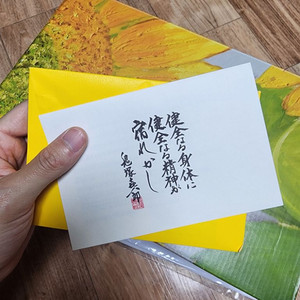 健全なる身体に
健全なる精神が
宿れかし
鬼塚喜八郎